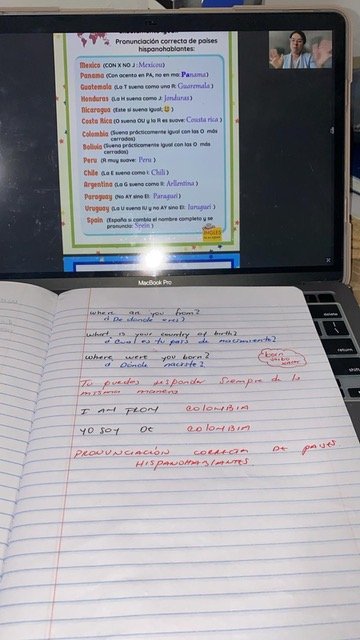 Pronunciación correcta de países
hispanohablantes:
Mexico (CON X NO J : Mexicou)
Panama (Con acento en PA, no en ma: Panama)
Guatemala (La T suena como una R: Guaremala)
Honduras (La H suena como J: Jonduras)
Nicaragua (Este si suena igual: )
Costa Rica (O suena OU y la R es suave: Cousta rica)
Colombia (Suena prácticamente igual con las O más
cerradas)
Bolivia (Suena prácticamente igual con las O más
cerradas)
Peru (R muy suave: Peru)
Chile (La E suena como I: Chili)
Argentina (La G suena como ll: Arllentina)
Paraguay (No AY sino EI: Paraguei)
Uruguay (La U suena IU y no AY sino EI: Iuruguei)
Spain (España si cambia el nombre completo y se
pronuncia: Spein)
INGLES
MacBook Pro
where are you from?
de donde eres?
what is your country of birth?
Cual es tu país de nacimiento?
where were you born?
Dónde naciste?
born
Tu puedes responder siempre de la
misma manera
I AM FROM COLOMBIA
YO SOY DE COLOMBIA
PRONUNCIACIÓN CORRECTA DE PAISES
HISPANOHABLANTES.